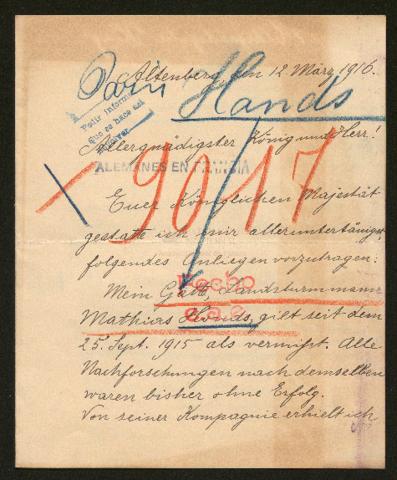 Altenberg, den 12. März 1916.
Hands
Pedir informe
que se hace así
Allergnädigster König und Herr!
ALEMANES EN FRANCIA
9017
Euer Königlichen Majestät
gestatte ich mir alleruntertänigst
folgendes Anliegen vorzutragen:
Hecho
Mein Gatte, Landsturmmann
Mathias Hands, gilt seit dem
25. Sept. 1915 als vermißt. Alle
Nachforschungen nach demselben
waren bisher ohne Erfolg.
Von seiner Kompagnie erhielt ich